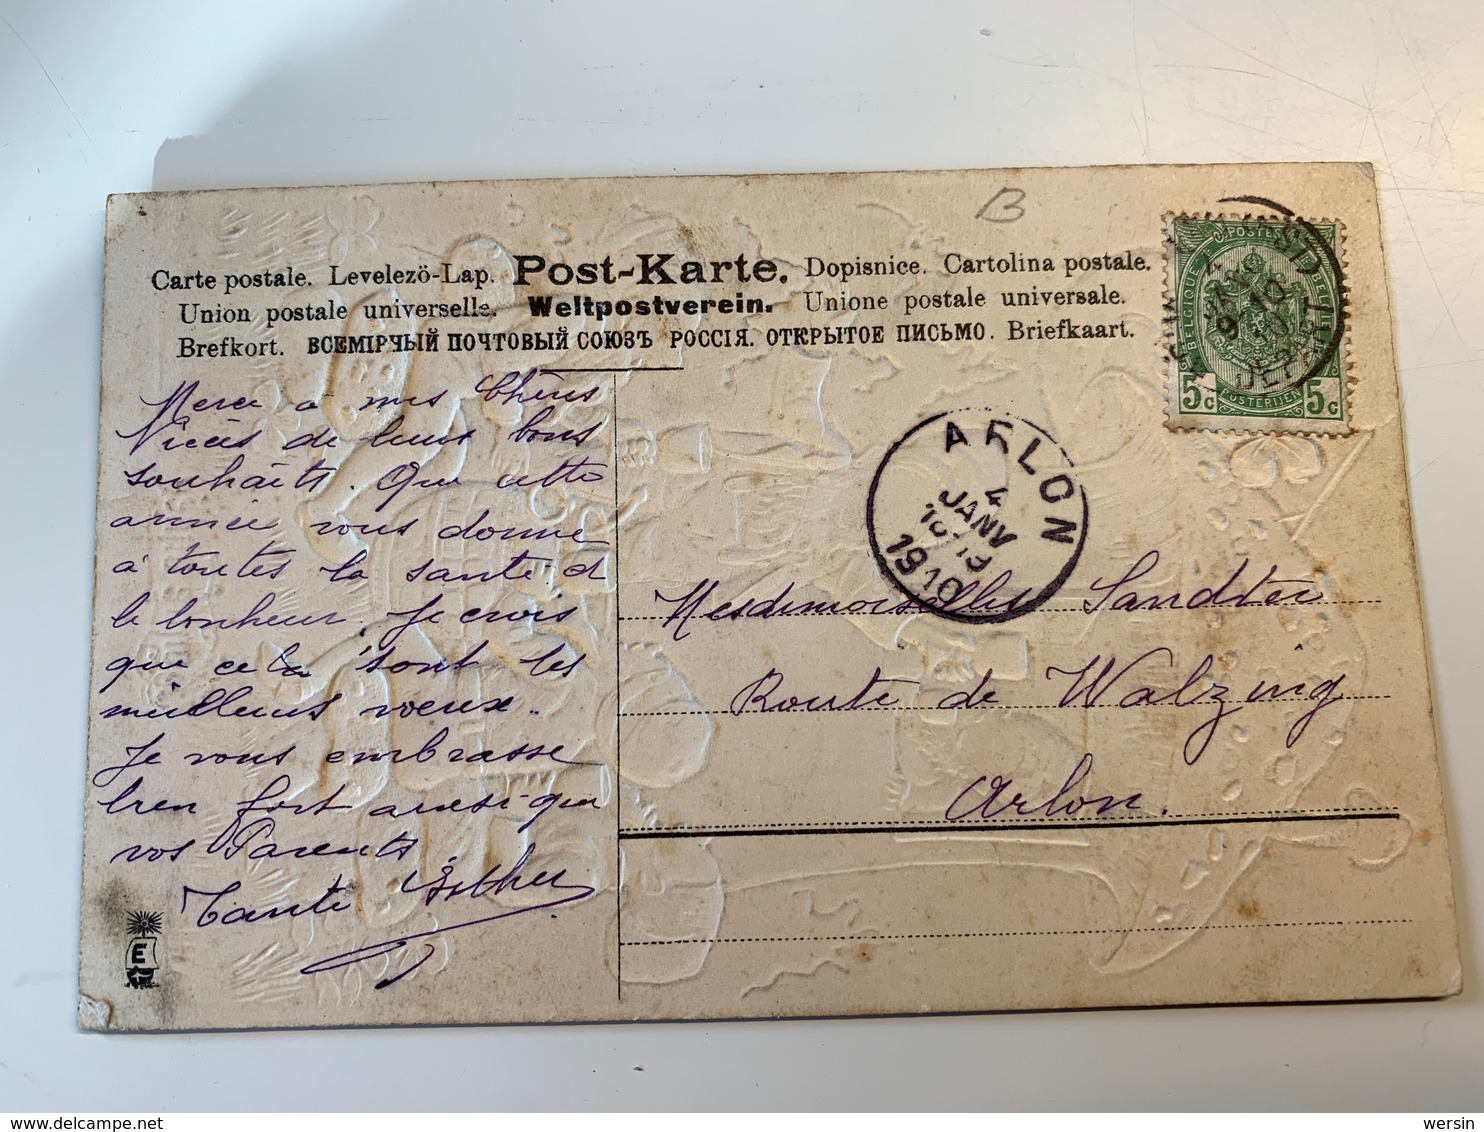 B
Carte postale. Levelezö-Lap. Post-Karte. Dopisnice. Cartolina postale.
Union postale universelle. Weltpostverein. Unione postale universale.
Brefkort. ВСЕМІРЧЫЙ ПОЧТОВЫЙ СОЮЗЪ РОССІЯ. ОТКРЫТОЕ ПИСЬМО. Briefkaart.
POSTES
BELGIQUE
BELGIË
POSTERIJEN
5c 5c
DEPART
ARLON
4
JANV
1910
Merci à mes Chères
Nièces de leurs bons
souhaits. Que cette
année vous donne
à toutes la santé et
le bonheur. Je crois
que cela sont les
meilleurs voeux..
Je vous embrasse
bien fort ainsi que
vos Parents.
Tante Esther
Mesdemoiselles
Route de Walzing
Arlon.
E
wersin